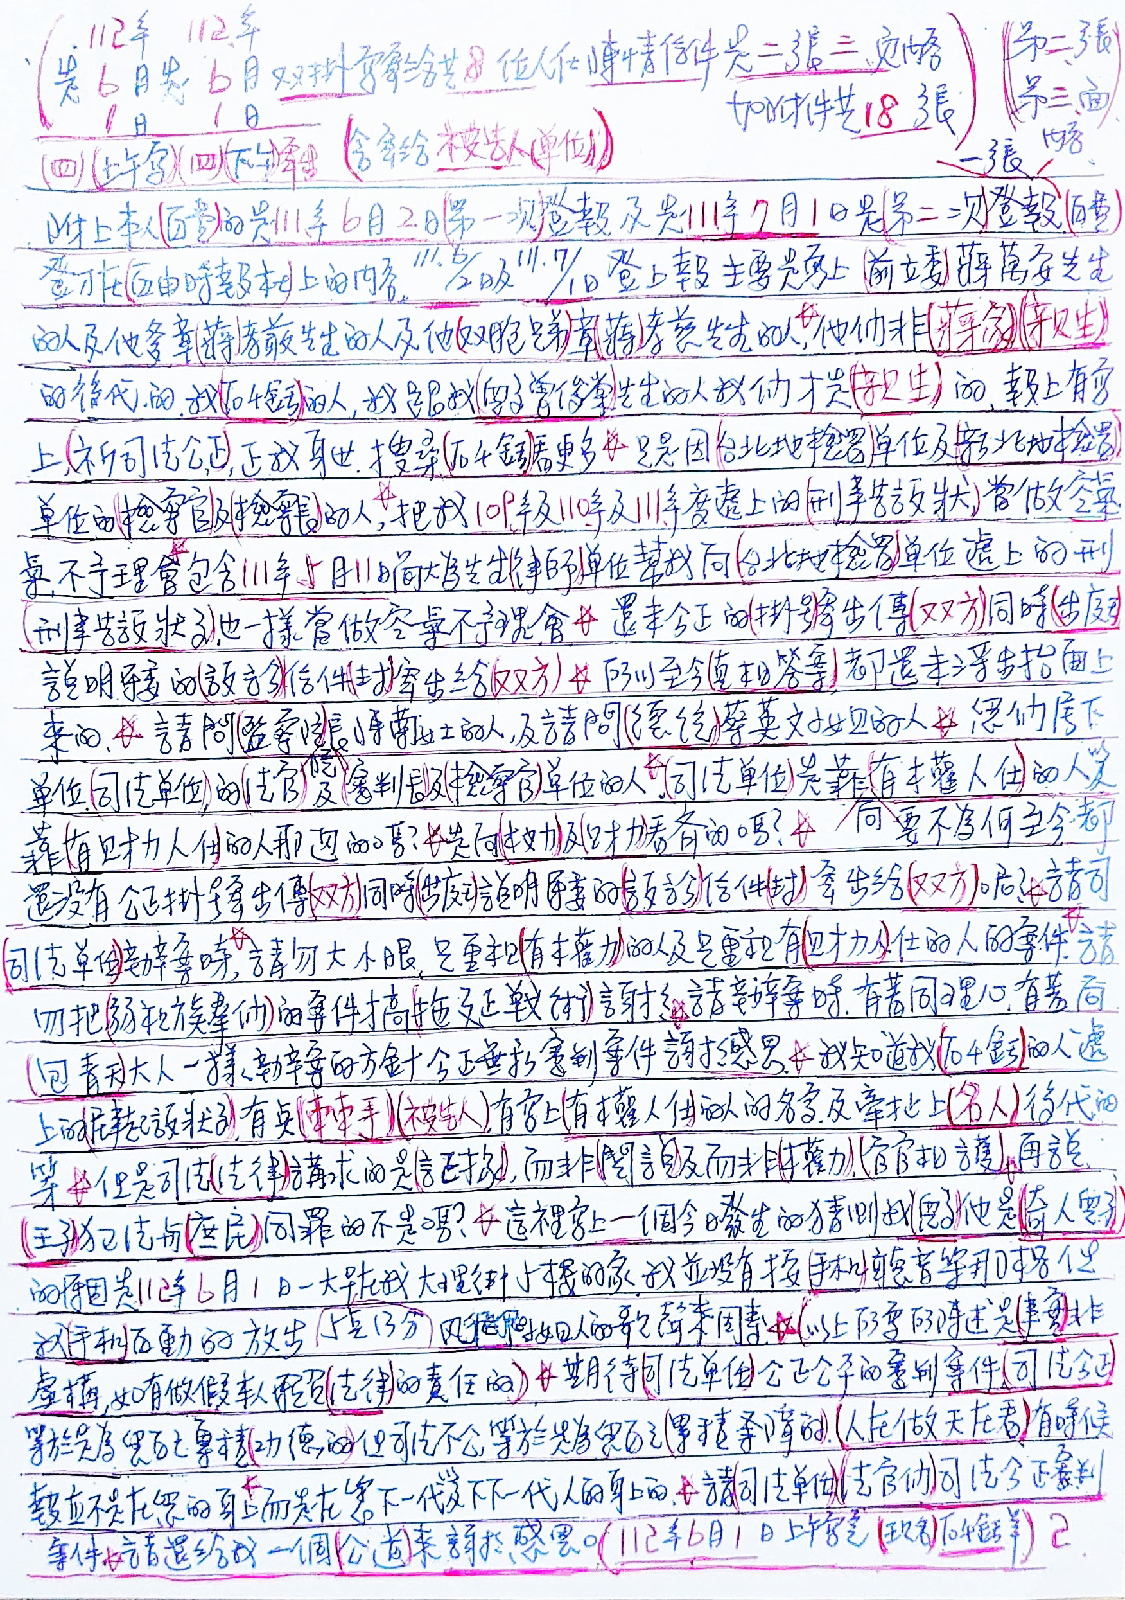 112年 112年
是6月是6月双掛號寄給共8位人仕陳情信件是二張三面內容 (第二張
1日 1日 加附件共18張 第三面
(四)(上午寫)(四)(下午)寄出 (含寄給被告人(單位)) 一張 內容
附上本人(自費)的是111年6月2日(第一次)登報及是111年7月1日是(第二次)登報(自費)
登刊在(自由時報社)上的內容。111.6/2日及111.7/1日登上報主要是寫上(前立委)蔣萬安先生
的人及他爸章(蔣)孝嚴先生的人及他(双胞兄弟)章(蔣)孝慈先生的人,他們非(蔣家)(親生)
的後代的,我(石千金)的人,我是跟我(兒子)曾俊 先生的人我們才是(親生)的,報上有寫
上,(祈司法公正,正我身世,搜尋(石千金)看更多 只是因(台北地檢署)單位及(新北地檢署)
單位的(檢察官)及(檢察長)的人,把我109年及110年及111年度遞上的(刑事告訴狀)當做空氣
氣,不予理會包含111年5月11日 先生(律師)單位幫我向(台北地檢署)單位遞上的刑
(刑事告訴狀子)也一樣當做空氣不予理會 還未公正的(掛號)寄出傳(双方)同時(出庭)
說明原委的 信件(封)寄出給(双方) 所以至今(真相答案)都還未浮出抬面上
來的, 請問(監察院長)陳菊女士的人,及請問(總統)蔡英文小姐的人 您們底下
單位,(司法單位)的(法官)及(審判長)及(檢察官)單位的人,(司法單位)是靠(有本權人仕)的人及
靠(有財力人仕)的人那邊的嗎? 是向(權力)及(財力)看齊的嗎? 要不為何至今都
還沒有公正掛號寄出傳(双方)同時(出庭)說明原委的 信件(封)寄出給(双方)。 請司
司法單位)辦案時,請勿大小眼,只重視(有本權力)的人及只重視有(財力人)仕的人的案件,請
勿把(弱視族羣們)的案件搞拖延戰術)謝謝, 請辦案時,有著同理心,有著向
(包青天)大人一樣,辦案的方針公正無私審判案件謝謝感恩 我知道我(石千金)的人遞
上的(告訴狀子)有點(棘手)(被告人)有寫上(有本權人仕)的人的名字及牽扯上(名人)後代的
等 但是司法(法律)講求的是(證據),而非(關說)及而非(本權力)(官官相護),再說,
(王子)犯法與(庶民)同罪的不是嗎? 這裡寫上一個今日發生的 我(兒子)他是(奇人兒子)
的原因是112年6月1日一大早在我大理街5樓的家,我並沒有按(手機)聽音 但
我(手機)自動的放出(5點13分) 小姐人的歌聲來 以上所寫的陳述是(事實)非
虛構,如有做假本人願負(法律)的責任的) 期待(司法單位)公正公平的審判案件,(司法公正)
等於是為您自己累積(功德)的但司法不公,等於是為您自己(累積業障的)(人在做天在看)有時候
報應不是在您的身上而是在您下一代及下下一代人的身上的, 請(司法單位)(法官們)司法公正審判
案件, 請還給我一個(公道)來謝謝,感恩。(112年6月1日上午寫完 (石千金) 2